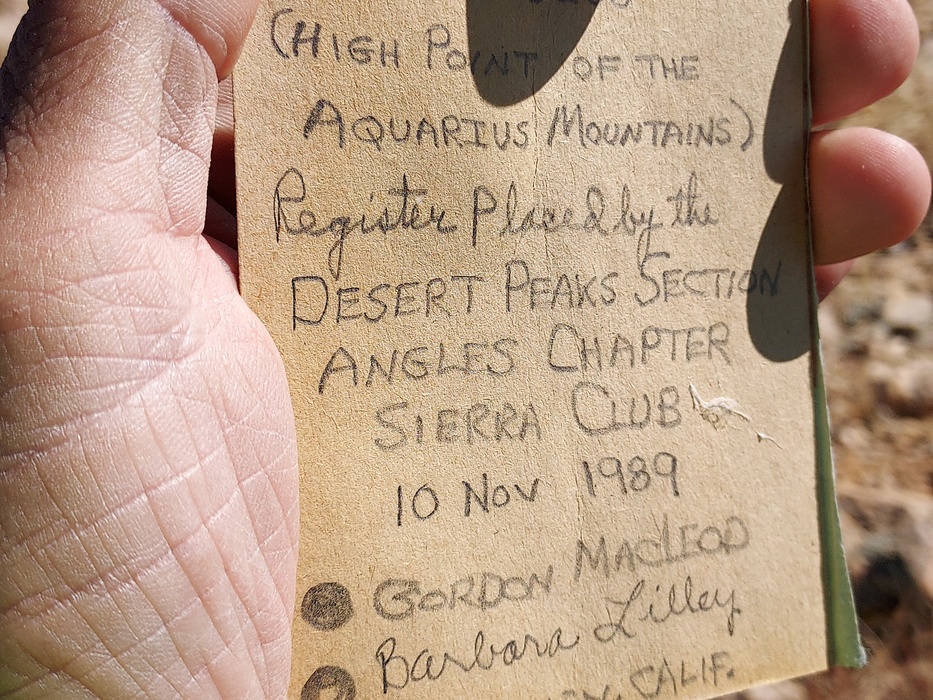 (HIGH POINT OF THE
AQUARIUS MOUNTAINS)
Register Placed by the
DESERT PEAKS SECTION
ANGLES CHAPTER
SIERRA CLUB
10 NOV 1989
GORDON MACLEOD
Barbara Lilley
CALIF.